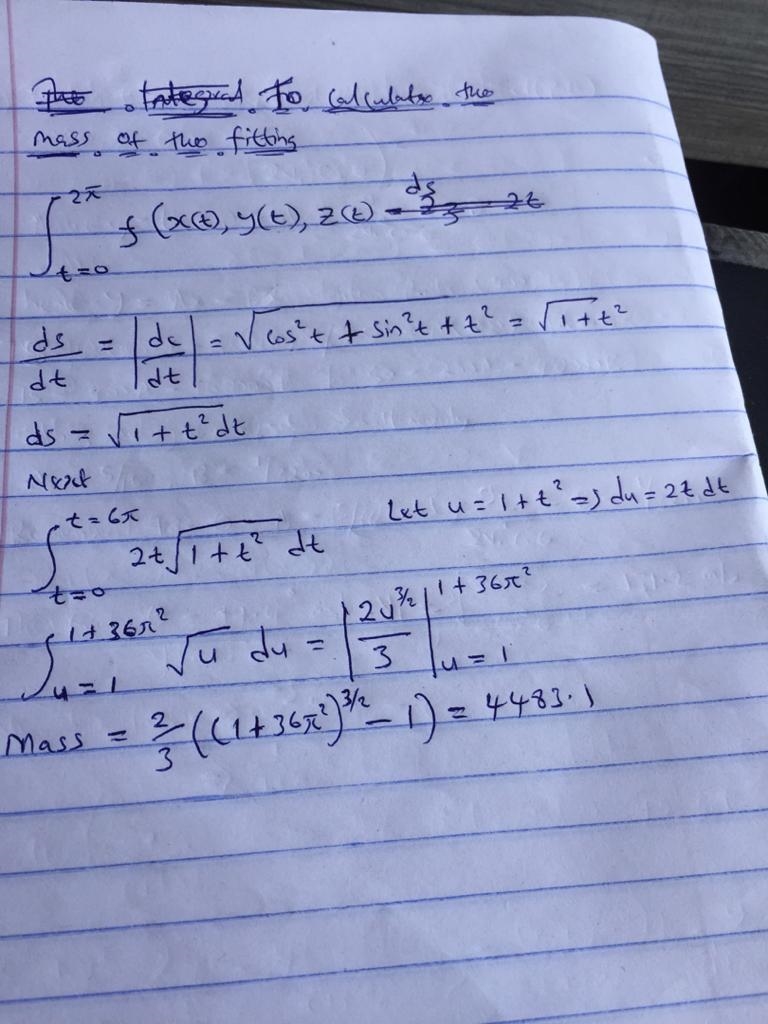 The Integral To calculate the
mass of the fitting
∫_{t=0}^{2π} f(x(t), y(t), z(t) ds
ds/dt = |dc/dt| = √(cos²t + sin²t + t²) = √(1+t²)
ds = √(1+t²) dt
Next
∫_{t=0}^{t=6π} 2t√(1+t²) dt Let u = 1+t² => du = 2t dt
∫_{u=1}^{1+36π²} √u du = |2u^{3/2}/3|_{u=1}^{1+36π²}
Mass = 2/3((1+36π²)^{3/2} - 1) = 4483.1